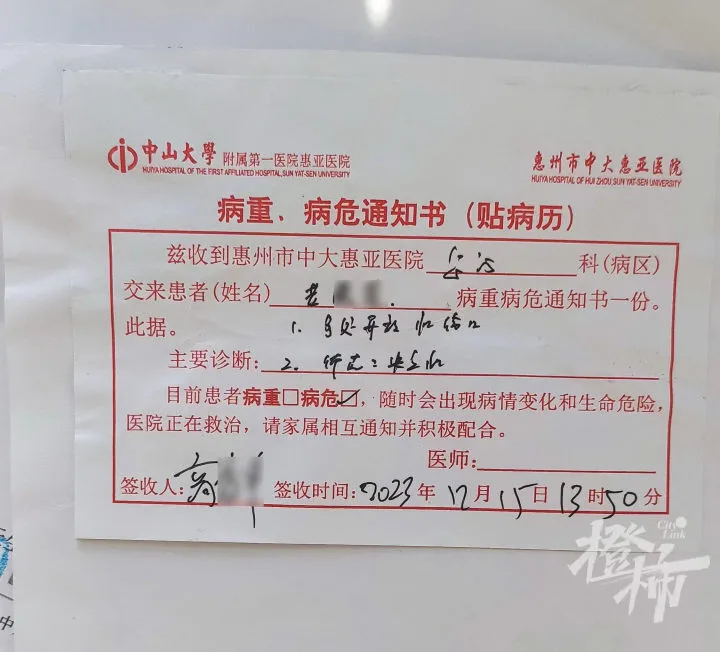 中山大學 附属第一医院惠亚医院
HUIYA HOSPITAL OF THE FIRST AFFILIATED HOSPITAL,SUN YAT-SEN UNIVERSITY
惠州市中大惠亚医院
HUIYA HOSPITAL OF HUI ZHOU,SUN YAT-SEN UNIVERSITY
病重、病危通知书（贴病历）
兹收到惠州市中大惠亚医院 急诊 科(病区)
交来患者(姓名) 病重病危通知书一份。
此据。 1. 多处开放性伤口
主要诊断: 2.
目前患者病重□病危☑，随时会出现病情变化和生命危险，
医院正在救治，请家属相互通知并积极配合。
医师:
签收人: 签收时间: 2023年12月15日13时50分
City Link
橙柿
中